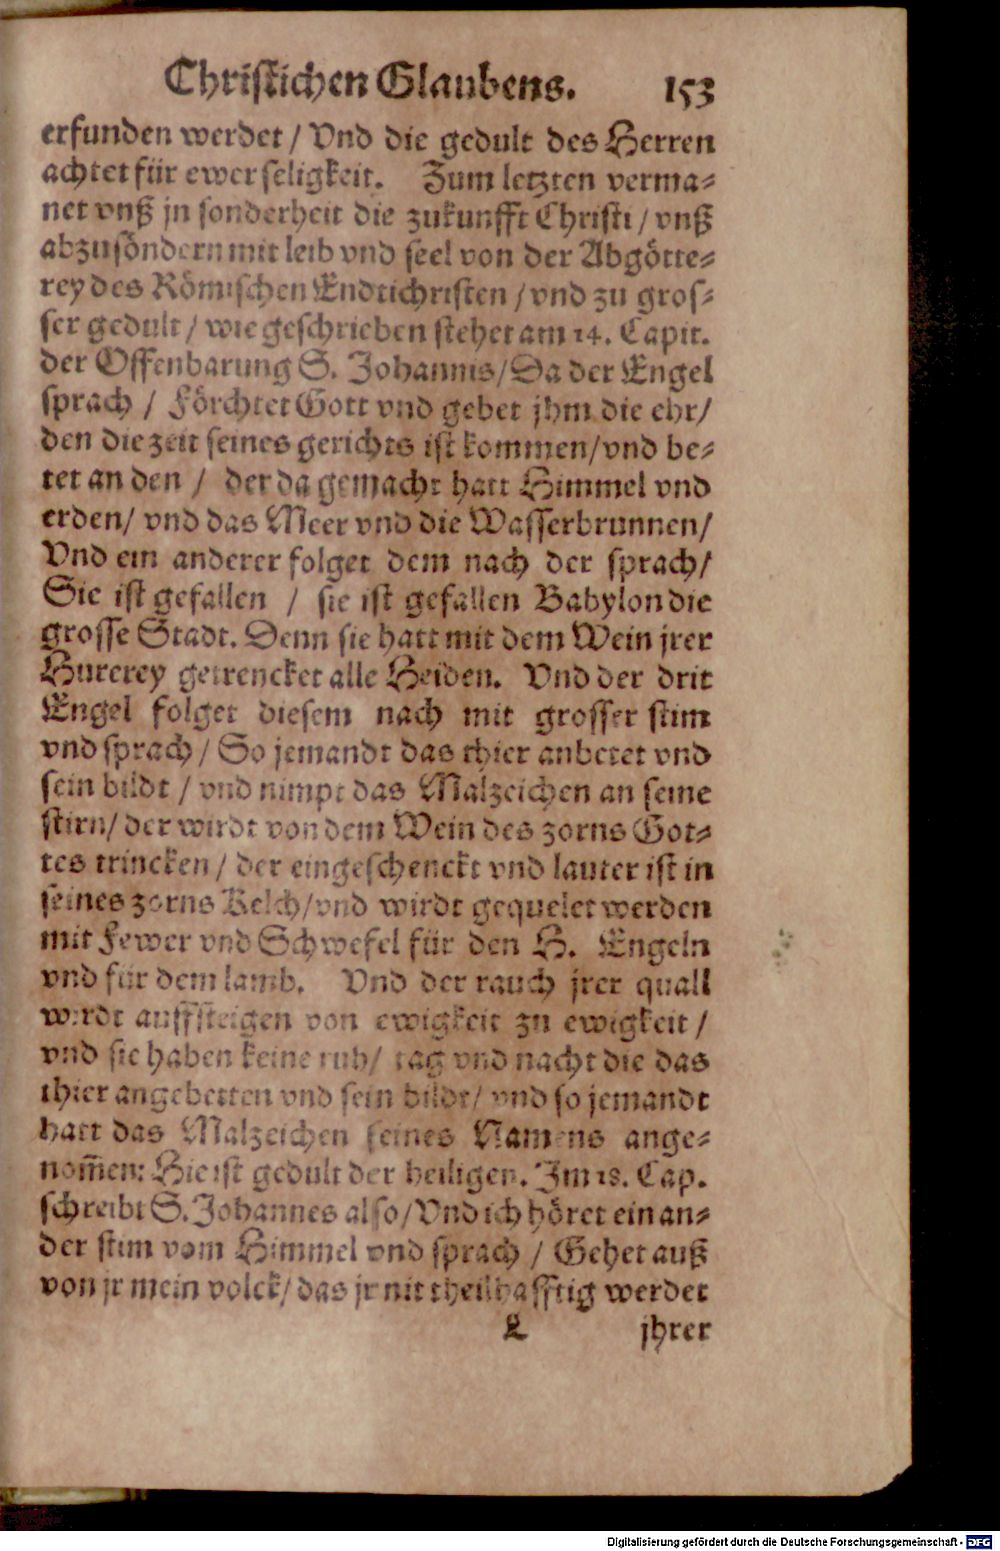 Christichen Glaubens. 153
erfunden werdet / Vnd die gedult des Herren
achtet für ewer seligkeit. Zum letzten verma-
net vnß jn sonderheit die zukunfft Christi / vnß
abzusöndern mit leib vnd seel von der Abgötte-
rey des Römischen Endtichristen / vnd zu gros-
ser gedult / wie geschrieben stehet am 14. Capit.
der Offenbarung S. Johannis / Da der Engel
sprach / Förchtet Gott vnd gebet jhm die ehr /
den die zeit seines gerichts ist kommen / vnd be-
tet an den / der da gemacht hatt Himmel vnd
erden / vnd das Meer vnd die Wasserbrunnen /
Vnd ein anderer folget dem nach der sprach /
Sie ist gefallen / sie ist gefallen Babylon die
grosse Stadt. Denn sie hatt mit dem Wein jrer
Hurerey getrencket alle Heiden. Vnd der drit
Engel folget diesem nach mit grosser stim
vnd sprach / So jemandt das thier anbetet vnd
sein bildt / vnd nimpt das Malzeichen an seine
stirn / der wirdt von dem Wein des zorns Got-
tes trincken / der eingeschenckt vnd lauter ist in
seines zorns Kelch / vnd wirdt gequelet werden
mit Fewer vnd Schwefel für den H. Engeln
vnd für dem lamb. Vnd der rauch jrer quall
wirdt auffsteigen von ewigkeit zu ewigkeit /
vnd sie haben keine ruh / tag vnd nacht die das
thier angebetten vnd sein bildt / vnd so jemandt
hatt das Malzeichen seines Namens ange-
nom̃en: Hie ist gedult der heiligen. Im 18. Cap.
schreibt S. Johannes also / Vnd ich höret ein an-
der stim vom Himmel vnd sprach / Gehet auß
von jr mein volck / das jr nit theilhafftig werdet
L jhrer
Digitalisierung gefördert durch die Deutsche Forschungsgemeinschaft - DFG